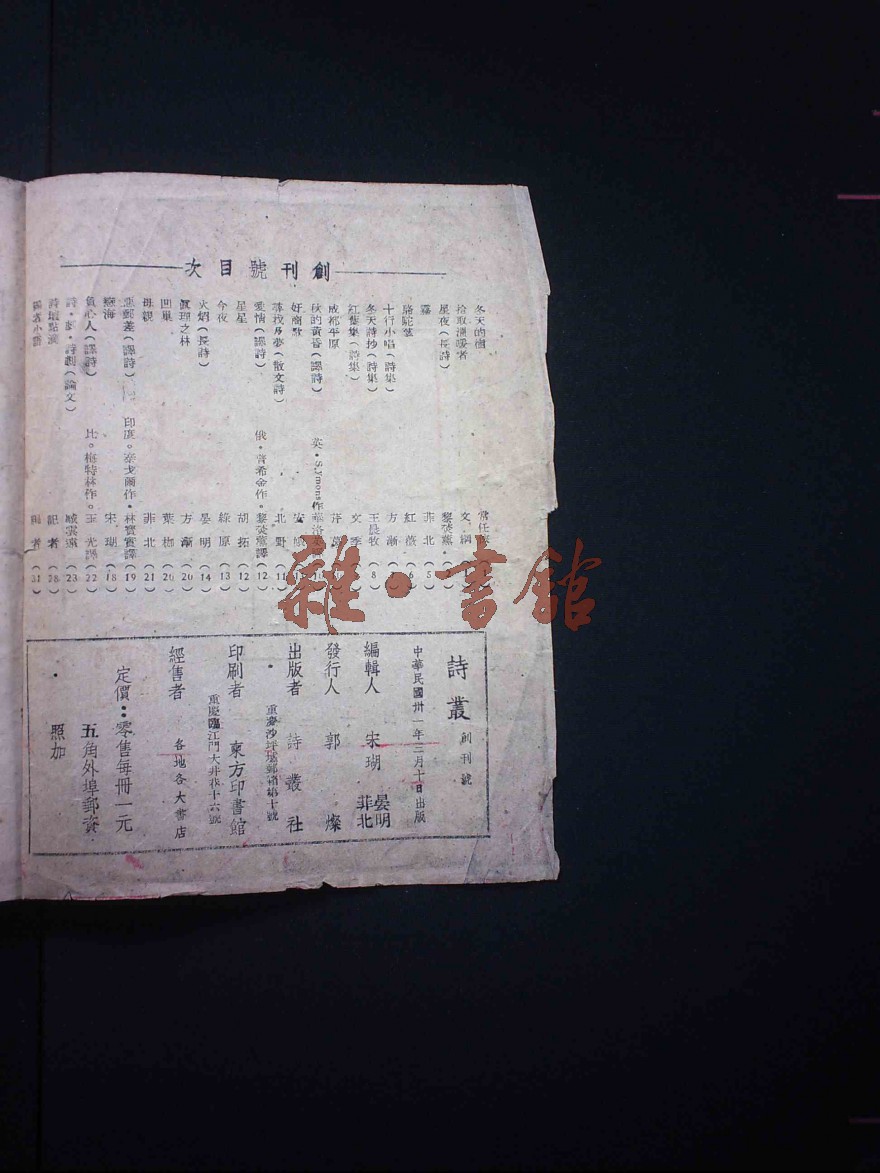 創刊號目次
冬天的樹 常任
拾取溫暖者 文 綱
星夜(長詩) 黎焚薰
霧 菲北(5)
駱駝 紅薇(6)
十行小唱(詩集) 方漸
冬天詩抄(詩集) 王晨牧(8)
紅葉集(詩集) 文季
成都平原
秋的黃昏(譯詩) 英·Symons作
好商量
尋找 夢(散文詩) 北野(11)
愛情(譯詩) 俄·普希金作。黎焚薰譯(12)
星星 胡拓(12)
今夜 綠原(13)
火焰(長詩) 晏明(14)
眞理之林 方漸(20)
凹巢 葉枷(20)
母親 菲北(21)
郵差(譯詩) 印度。泰戈爾作·林寶賓譯(19)
海 宋瑚(18)
負心人(譯詩) 比。梅特林作。王光譯(22)
詩·劇·詩劇(論文) 臧雲遠(23)
詩壇點滴 記者(28)
編者(31)
詩叢 創刊號
中華民國卅一年三月十日出版
編輯人 宋瑚 晏明 菲北
發行人 郭燦
出版者 詩叢社
重慶沙坪壩郵箱第十號
印刷者 東方印書館
重慶臨江門大井巷十六號
經售者 各地各大書店
定價:零售每冊一元
五角外埠郵資
照加
雜·書館